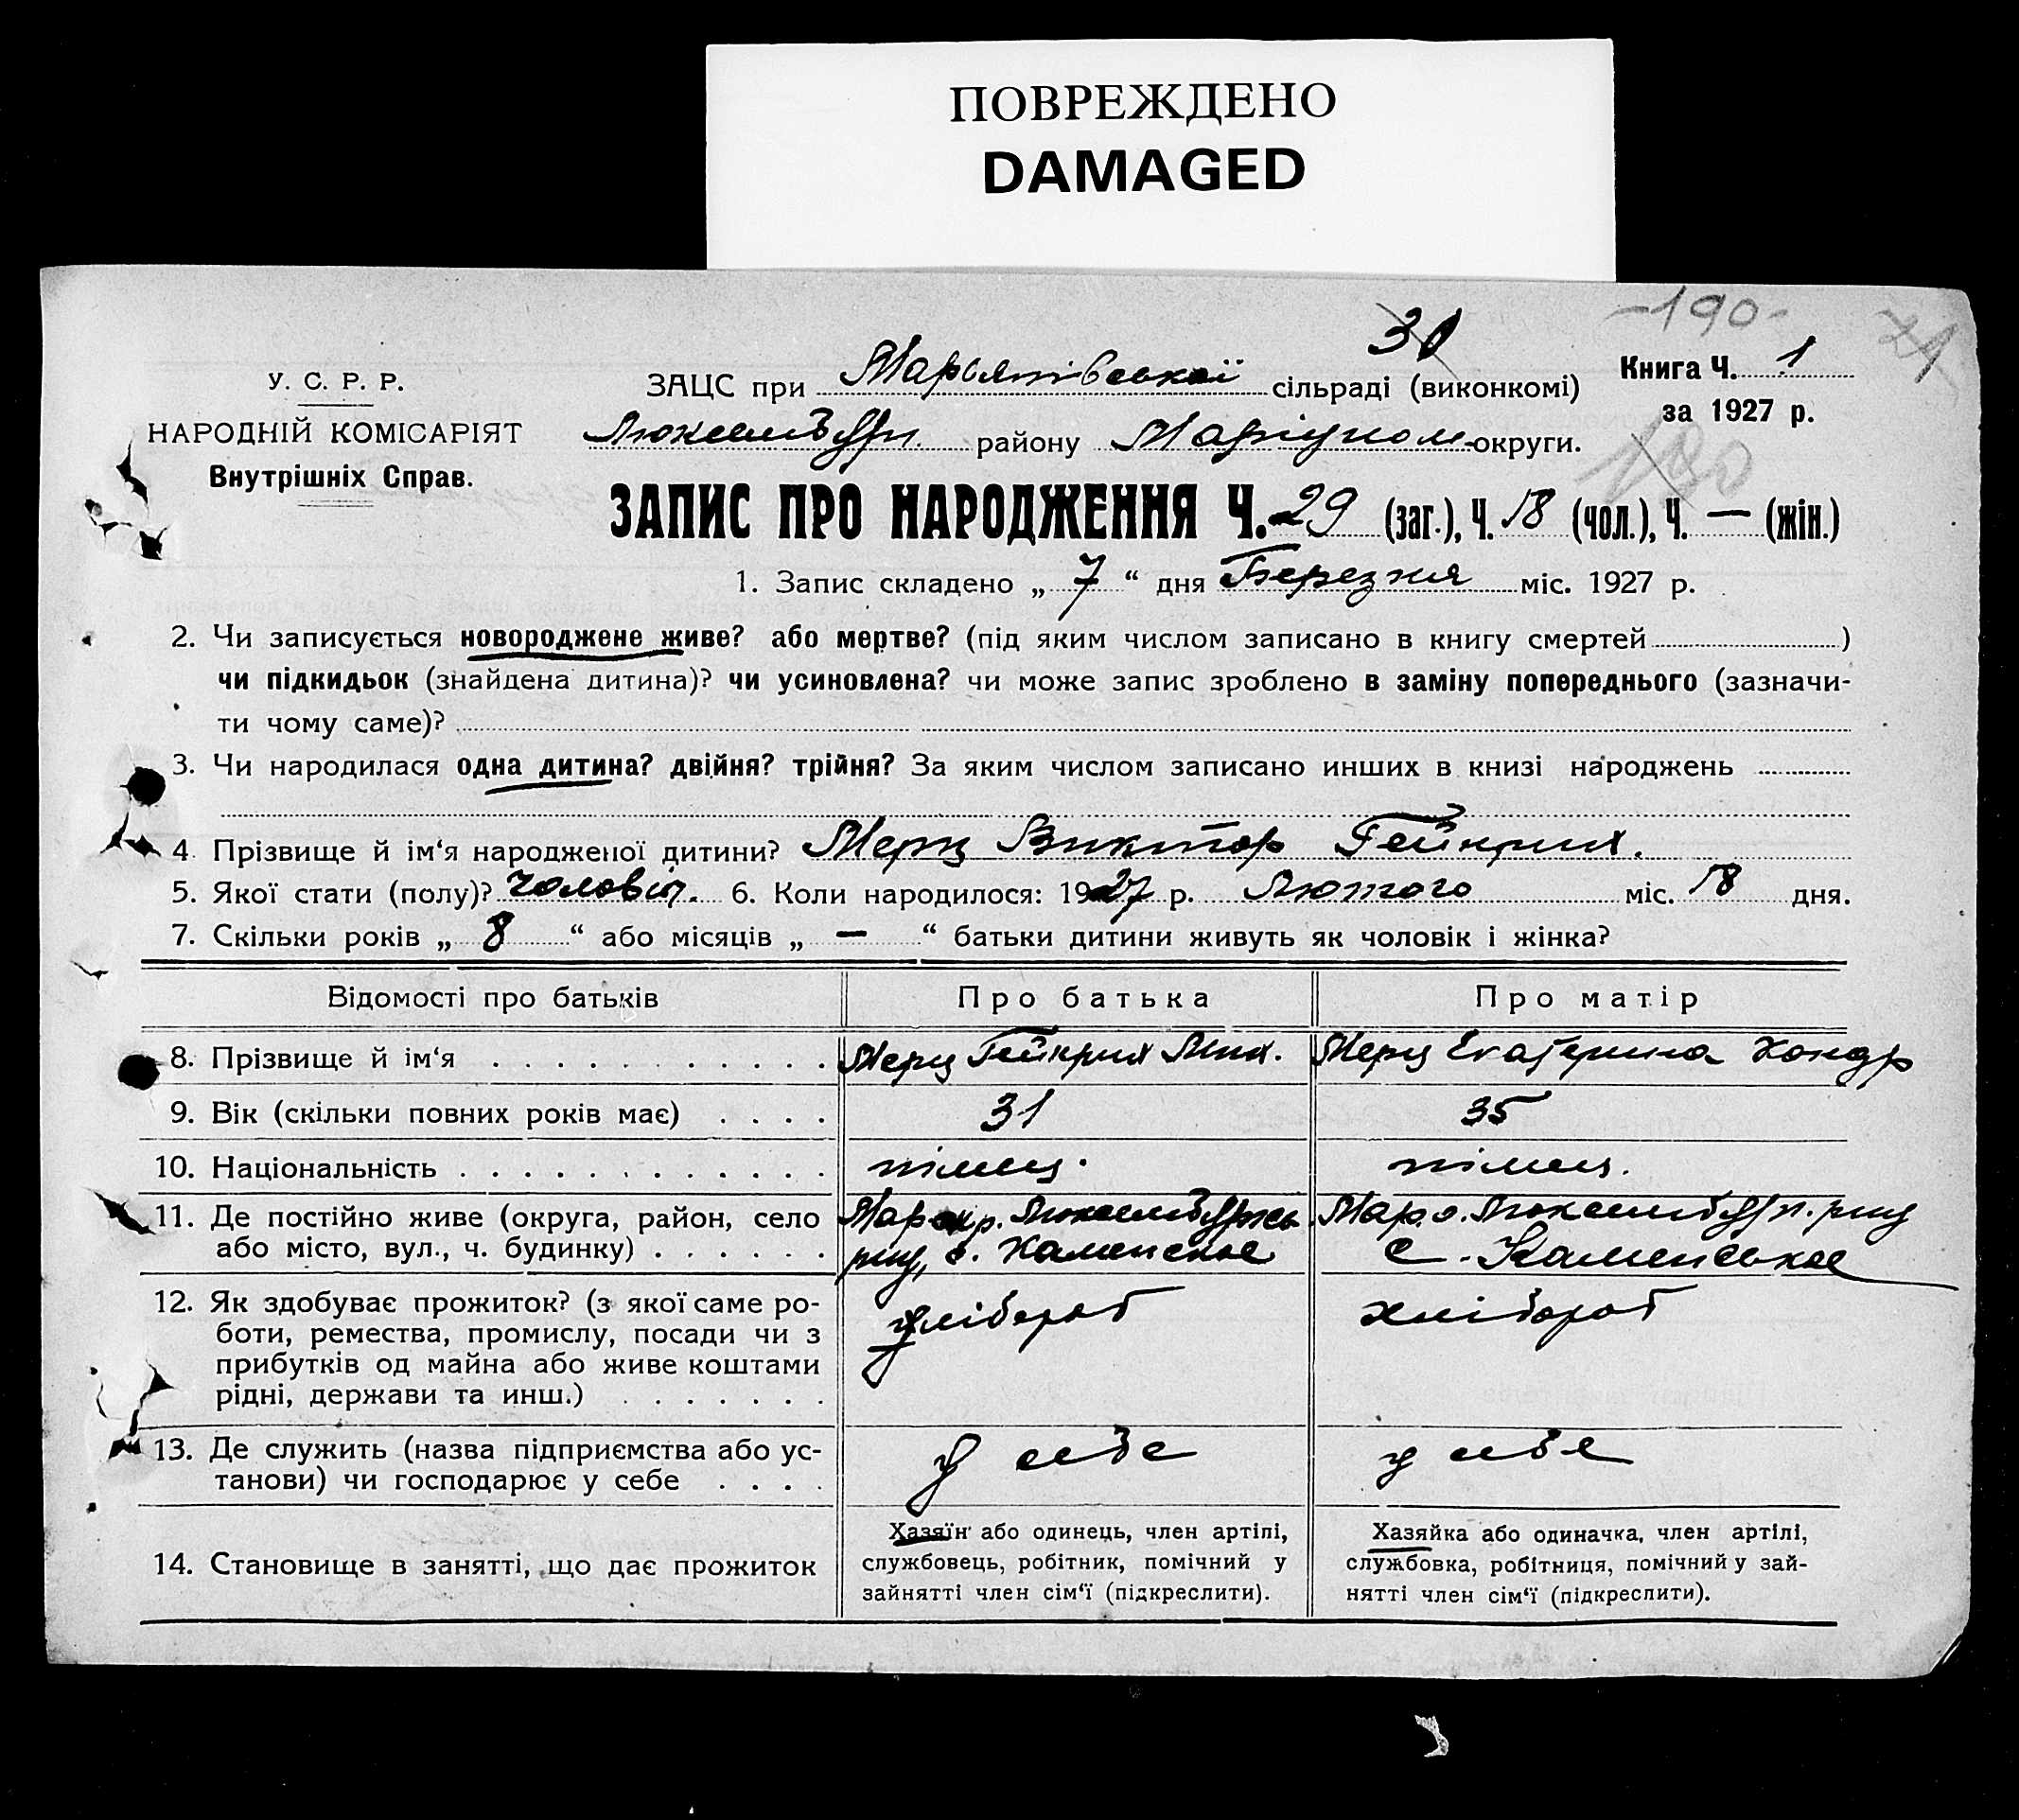 ПОВРЕЖДЕНО
DAMAGED
-190-
30
71
У. С. Р. Р.
НАРОДНІЙ КОМІСАРІЯТ
Внутрішніх Справ.
ЗАЦС при Марьятівської сільраді (виконкомі)
Книга Ч. 1
за 1927 р.
Люксембурн. району Маріупол-округи.
190
ЗАПИС ПРО НАРОДЖЕННЯ Ч. 29 (заг.), Ч. 18 (чол.), Ч. — (жін.)
1. Запис складено „ 7 “ дня Березня міс. 1927 р.
2. Чи записується новороджене живе? або мертве? (під яким числом записано в книгу смертей )
чи підкидьок (знайдена дитина)? чи усиновлена? чи може запис зроблено в заміну попереднього (зазначи-
ти чому саме)?
3. Чи народилася одна дитина? двійня? трійня? За яким числом записано инших в книзі народжень
4. Прізвище й ім‘я народженої дитини? Мерц Виктор Гейнрих.
5. Якої стати (полу)? чоловіч. 6. Коли народилося: 1927 р. Лютого міс. 18 дня.
7. Скільки років „ 8 “ або місяців „ — “ батьки дитини живуть як чоловік і жінка?
Відомості про батьків Про батька Про матір
8. Прізвище й ім‘я Мерц Гейнрих Мих. Мерц Екатерина Кондр
9. Вік (скільки повних років має) 31 35
10. Національність німец. німец.
11. Де постійно живе (округа, район, село
або місто, вул., ч. будинку)
Мар окр. Люксембургсь
рну, с. Каменское
Мар. о. Люксембурн. рну
с. Каменськое
12. Як здобуває прожиток? (з якої саме ро-
боти, ремества, промислу, посади чи з
прибутків од майна або живе коштами
рідні, держави та инш.)
хлібороб
хлібороб
13. Де служить (назва підприємства або ус-
танови) чи господарює у себе
у себе
у себе
14. Становище в занятті, що дає прожиток
Хазяїн або одинець, член артілі,
службовець, робітник, помічний у
зайнятті член сім‘ї (підкреслити).
Хазяйка або одиначка, член артілі,
службовка, робітниця, помічний у зай-
нятті член сім‘ї (підкреслити).